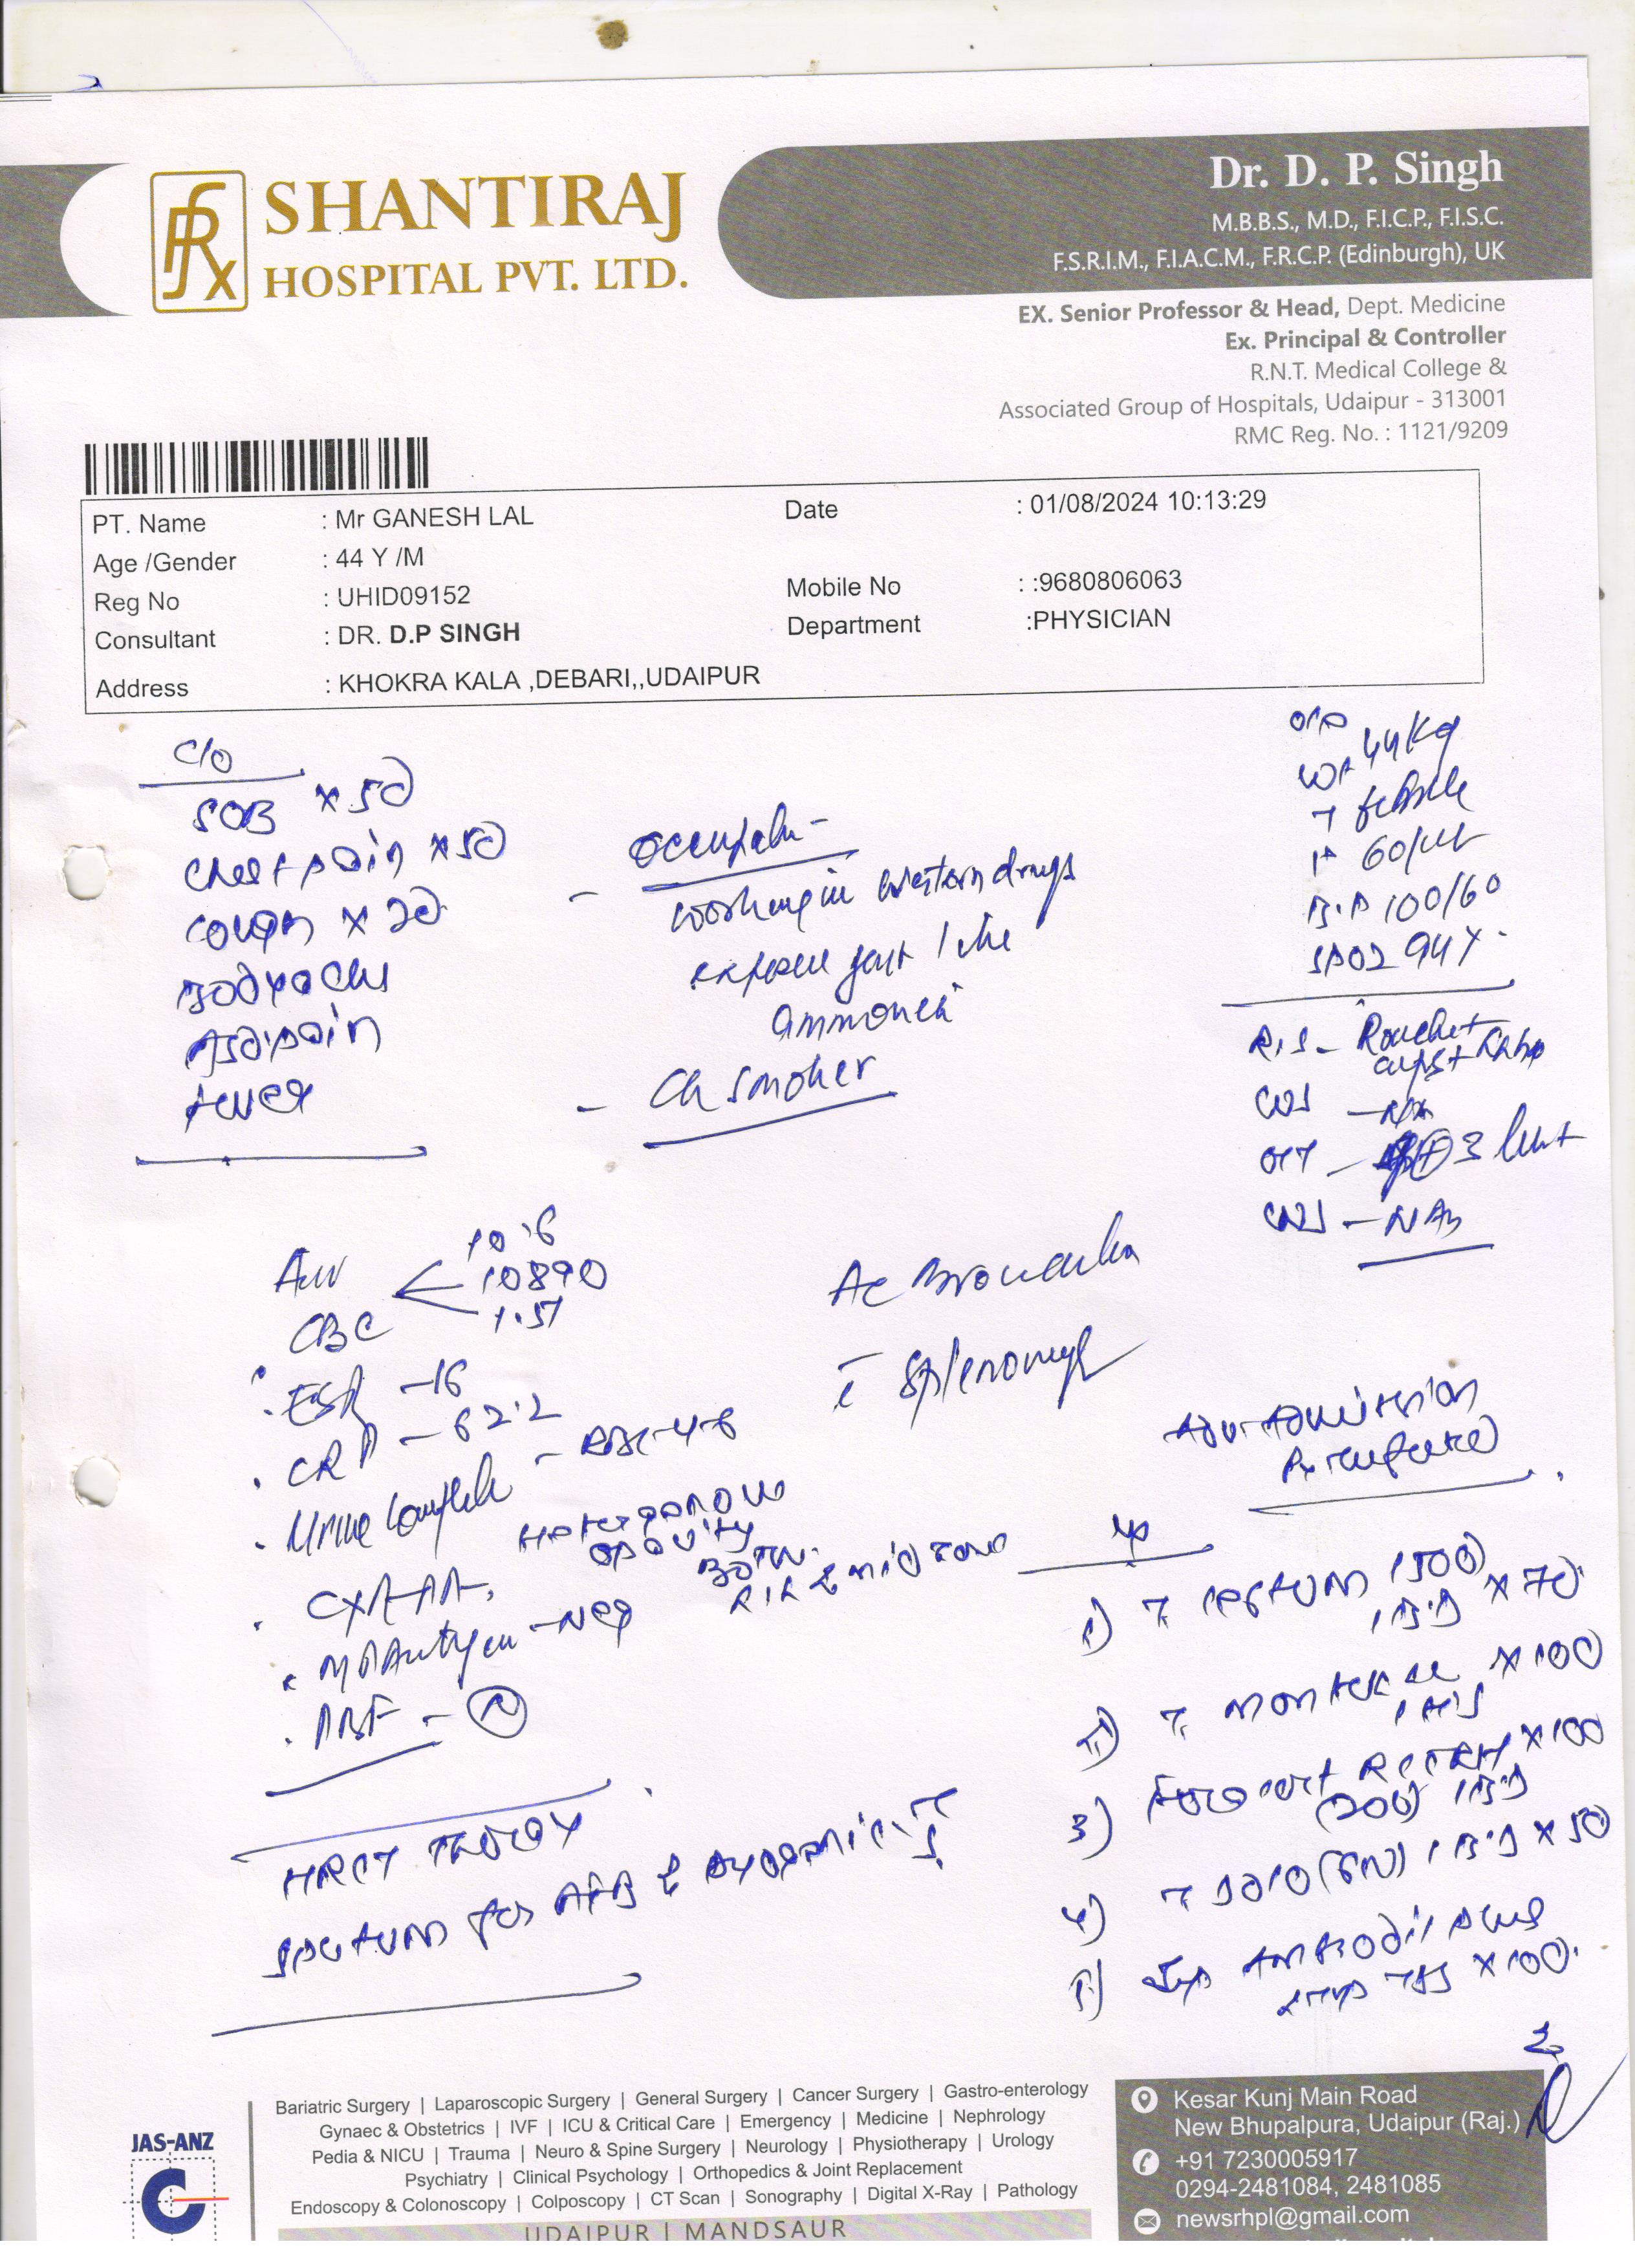 SHANTIRAJ
HOSPITAL PVT. LTD.
Dr. D. P. Singh
M.B.B.S., M.D., F.I.C.P., F.I.S.C.
F.S.R.I.M., F.I.A.C.M., F.R.C.P. (Edinburgh), UK
EX. Senior Professor & Head, Dept. Medicine
Ex. Principal & Controller
R.N.T. Medical College &
Associated Group of Hospitals, Udaipur - 313001
RMC Reg. No. : 1121/9209
PT. Name : Mr GANESH LAL Date : 01/08/2024 10:13:29
Age /Gender : 44 Y /M
Reg No : UHID09152 Mobile No : :9680806063
Consultant : DR. D.P SINGH Department :PHYSICIAN
Address : KHOKRA KALA ,DEBARI,,UDAIPUR
C/O
SOB x 5D
Chest pain x 5D
Cough x 2D
Bodyache
Abd. pain
Fever
working in western drugs
ammonia
Ch smoker
Wt 44 Kg
T febrile
B.P 100/60
SPO2 94%
R.S -
CVS
CNS - NAD
10.6
10890
1.51
CBC
ESR - 16
CRP - 62.2
Urine Complete - RBC-4-6
CXR-PA
Heterogenous
opacity
mid zone
MP Antigen - Neg
PBF - N
Ac Bronchitis
Splenomegaly
Adv. Admission
Pt. refused
HRCT THORAX
SPUTUM for AFB & pyogenic
1) T. (500)
1 B.D x 7D
2) T. Montek LC x 10D
1 HS
3) Foracort x 10D
(200) 1 B.D
4) T. Dolo (650) 1 B.D x 5D
5) Syp Ambrodil plus
2 TSP TDS x 10D
JAS-ANZ
Bariatric Surgery | Laparoscopic Surgery | General Surgery | Cancer Surgery | Gastro-enterology
Gynaec & Obstetrics | IVF | ICU & Critical Care | Emergency | Medicine | Nephrology
Pedia & NICU | Trauma | Neuro & Spine Surgery | Neurology | Physiotherapy | Urology
Psychiatry | Clinical Psychology | Orthopedics & Joint Replacement
Endoscopy & Colonoscopy | Colposcopy | CT Scan | Sonography | Digital X-Ray | Pathology
UDAIPUR | MANDSAUR
Kesar Kunj Main Road
New Bhupalpura, Udaipur (Raj.)
+91 7230005917
0294-2481084, 2481085
newsrhpl@gmail.com